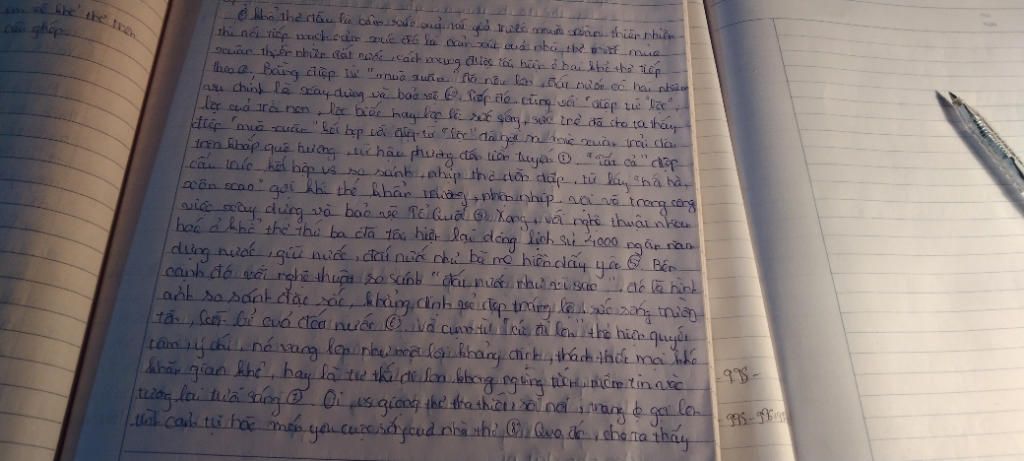 Ở khổ thơ đầu là cảm xúc của tác giả trước mùa xuân thiên nhiên
thì nối tiếp mạch cảm xúc đó là cảm xúc của nhà thơ trước mùa
xuân thiên nhiên đất nước, cách mạng được tái hiện ở hai khổ thơ tiếp
theo. Bằng điệp từ "mùa xuân" đã nêu lên, đất nước có hai nhiệm
vụ chính là xây dựng và bảo vệ. Tiếp đó, cùng với "điệp từ "lộc",
lộc của trồi non, lộc biếc hay lộc là sức sống, sức trẻ đã cho ta thấy
điệp "mùa xuân" kết hợp với điệp từ "lộc" đã gợi mùa xuân trải dài
trên khắp quê hương, từ hậu phương đến tiền tuyến ①. "Tất cả" điệp
cấu trúc kết hợp vs so sánh, nhịp thơ dồn dập, từ láy "hối hả,
xôn xao" gợi khí thế khẩn trương, nhộn nhịp, vội vã trong công
việc xây dựng và bảo vệ Tổ Quốc. Xong, với nghệ thuật nhân
hoá ở khổ thơ thứ ba đã tái hiện lại dòng lịch sử 4000 ngàn năm
dựng nước, giữ nước, đất nước như bà mẹ hiền đầy yêu ⑤. Bên
cạnh đó với nghệ thuật so sánh "đất nước như vì sao", đó là hình
ảnh so sánh đặc sắc, khẳng định vẻ đẹp tráng lệ, sức sống trường
tồn, bền bỉ của đất nước ⑥. Và cụm từ "cứ đi lên" thể hiện quyết
tâm, ý chí, nó vang lên như một lời khẳng định, thách thức mọi khó
khăn gian khổ, hay là tư thế đi lên không ngừng tiến, niềm tin vào
tương lai tươi sáng ⑦. vs giọng thơ tha thiết, sôi nổi, trang gợi lên
tình cảnh tự hào mến yêu cuộc sống của nhà thơ ⑧. Qua đó, cho ta thấy
câu ghép.
- 995 -